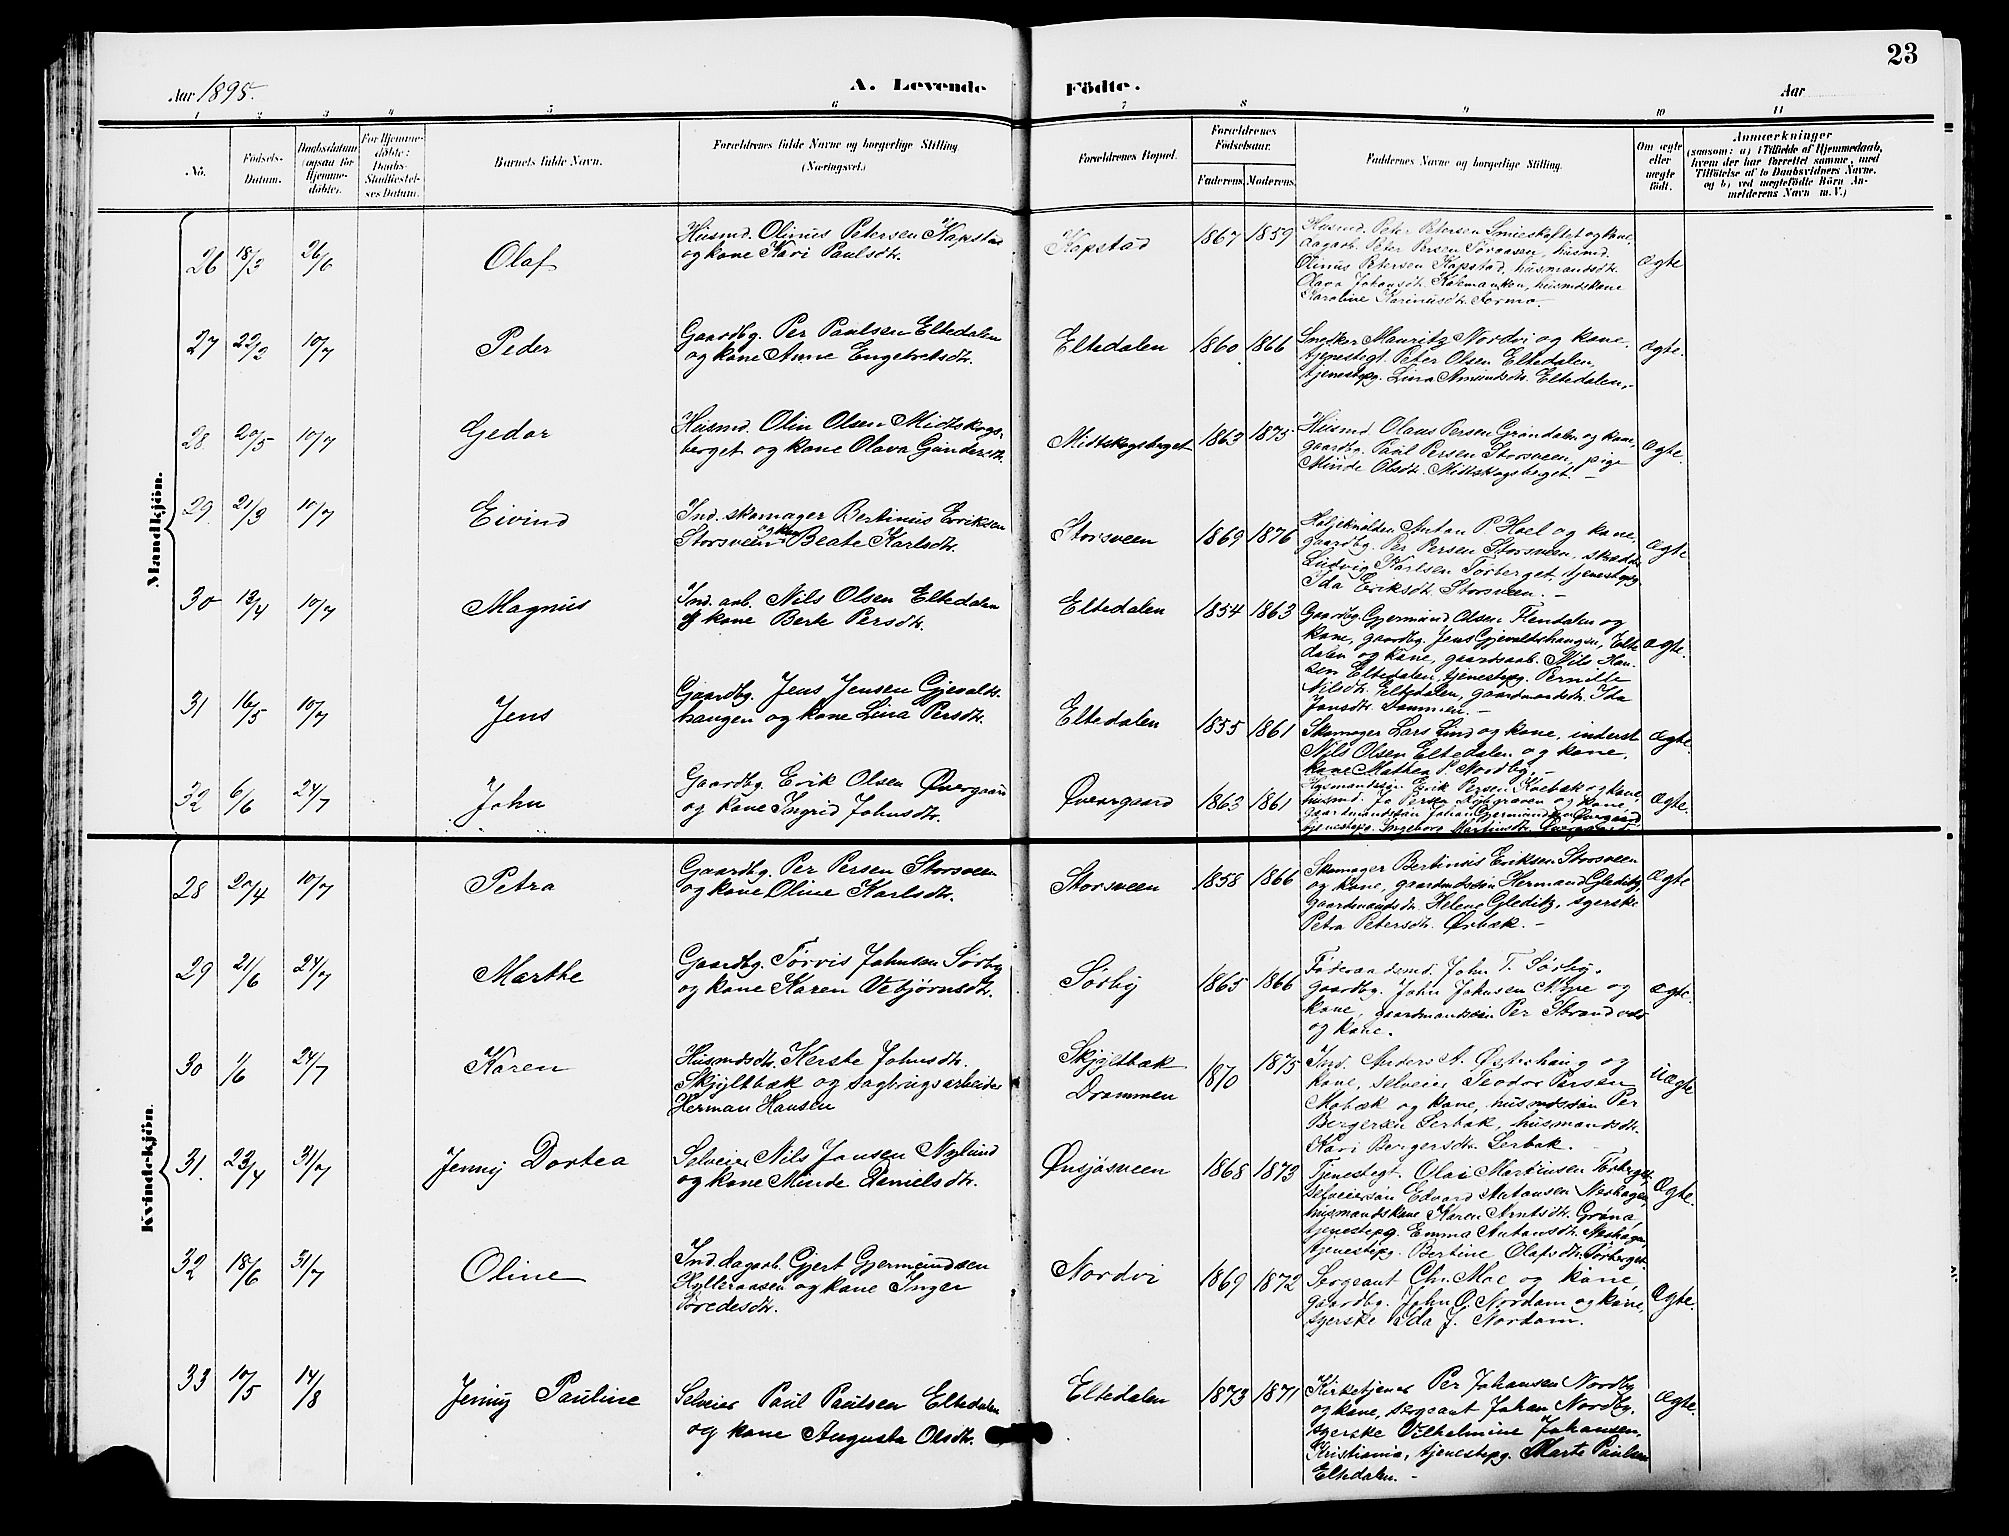 23
Aar 1895.
A. Levende Födte.
Aar
1 2 3 4 5 6 7 8 9 10 11
No.
Födsels-Datum.
Daabsdatum (ogsaa for Hjemme-döbte).
For Hjemme-döbte: Daabs-Stadfæstel-ses Datum.
Barnets fulde Navn.
Forældrenes fulde Navne og borgerlige Stilling (Næringsvei.)
Forældrenes Bopæl.
Forældrenes Födselsaar.
Faderens. Moderens.
Faddernes Navne og borgerlig Stilling.
Om ægte eller uægte födt.
Anmærkninger
(saasom: a) i Tilfælde af Hjemmedaab,
hvem der har forrettet samme, med
Tilföielse af to Daabsvidners Navne,
og b) ved uægtefödte Börn An-
melderens Navn m. V.)
Mandkjön.
26 18/3 26/6 Olaf
Husmd. Olinus Petersen Kapstad
og kone Kari Paulsdtr.
Kapstad 1867 1859
Husmd. Peter Petersen Smieskoftet og kone,
dagarb. Peter Persen Søraasen, husmd.
Olinus Petersen Kapstad, husmandsdtr.
Olava Johansdtr. husmdskone
Karoline Karinusdtr. Formo.-
ægte
27 22/3 10/7 Peder
Gaardbg. Per Paulsen Eltedalen
og kone Anne Engebretsdtr.
Eltedalen 1860 1866
Snedker Mauritz Nordvi og kone,
tjenestegt. Peter Olsen Eltedalen,
tjenestepg. Lina Amundsdtr. Eltedalen.-
ægte.
28. 20/5 10/7 Gedor
Husmd. Olin Olsen Midtskogs-
berget og kone Olava Gundersdtr.
Midtskogsberget 1863 1875
Husmd. Olaus Persen Grøndalen og kone,
gaardbg. Paul Persen Storsveen, pige
Minde Olsdtr. Midtskogsberget.-
ægte.
29. 21/3 10/7 Eivind
Ind. skomager Bertinus Eriksen
Storsveen og kone Beate Karlsdtr.
Storsveen 1869 1876
Anton P. Hoel og kone,
gaardbg. Per Persen Storsveen, skrædder
Ludvig Karlsen Tørberget, tjenestepg.
Ida Eriksdtr. Storsveen.-
ægte.
30 13/4 10/7 Magnus
Ind. arb. Nils Olsen Eltedalen
og kone Berte Persdtr.
Eltedalen 1854 1863
Gaardbg. Gjermund Olsen Flendalen og
kone, gaardbg. Jens Gjevaldshaugen, Elte
dalen og kone, gaardsarb. Nils Han-
sen Eltedalen, tjenestepg. Pernille
Nilsdtr. Eltedalen, gaardmandsdtr. Ida
Jonsdtr. Dammen.-
ægte.
31 16/5 10/7 Jens
Gaardbg. Jens Jensen Gjevalds-
haugen og kone Lina Persdtr.
Eltedalen 1855 1861
Skomager Lars Lund og kone, inderst
Nils Olsen Eltedalen og kone,
kone Mathea P. Nordby.-
Ægte.
32 6/6 24/7 John
Gaardbg. Erik Olsen Øvergaard
og kone Ingrid Johnsdtr.
Øvergaard 1863 1861
Husmandssøn Erik Persen og kone,
husmd. Jo Persen og kone,
gaardmandssøn Johan Gjermundsen Øvergaard,
tjenestepg. Ingeborg Martinsdtr. Øvergaard
Ægte.
Kvindekjön.
28 20/4 10/7 Petra
Gaardbg. Per Persen Storsveen
og kone Oline Karlsdtr.
Storsveen 1858 1866
Skomager Bertinus Eriksen Storsveen
og kone, gaardmdssøn Herman Gleditz,
gaardmandsdtr. Helene Gleditz, syerske
Petra Petersdtr. Ørbæk.-
Ægte
29 21/6 24/7 Marthe
Gaardbg. Torvis Johnsen Sørby
og kone Karen Vebjørnsdtr.
Sørby 1865 1866
Føderaadsmd. John T. Sørby,
gaardbg. John Johnsen Nype og
kone, gaardmandssøn Per Strandvold
og kone.
Ægte.
30 1/6 24/7 Karen
Husmdsdtr. Kerste Johnsdtr.
Skjyltbæk og sagbrugsarbeider
Herman Hansen
Skjyltbæk
Drammen
1870 1875
Ind. Anders A. Østerhaug og
kone, selveier Teodor Persen
Mobæk og kone, husmdssøn Per
Bergersen Lerbak, husmandsdtr.
Kari Bergersdtr. Lerbak.-
uægte
31. 23/4 31/7 Jenny Dortea
Selveier Nils Jonsen Nylund
og kone Minde Danielsdtr.
Ønsjøsveen 1868 1873
Tjenestegt. Olai Martinsen Tørberget,
selveiersøn Edvard Antonsen Neshagen,
husmandskone Karen Arntsdtr. Grøna,
tjenestepg. Emma Antonsdtr. Neshagen,
tjenestepg. Bertine Olafsdtr. Tørberget.
Ægte.
32 18/6 31/7 Oline
Ind. dagarb. Gjert Gjermundsen
Hylleraasen og kone Inger
Toredesdtr.
Nordvi 1869 1872
Sergeant Chr. Moe og kone,
gaardbg. John O. Nordam og kone,
syerske Ida J. Nordam.
Ægte.
33 10/5 14/8 Jenny Pauline
Selveier Paul Paulsen Eltedalen
og kone Augusta Olsdtr.
Eltedalen 1873 1871
Kirketjener Per Johansen Nordby
og kone, sergeant Johan Nordby,
syerske Vilhelmine Johansen,
Kristiania, tjenestepg. Marte Paulsen
Eltedalen.-
Ægte.